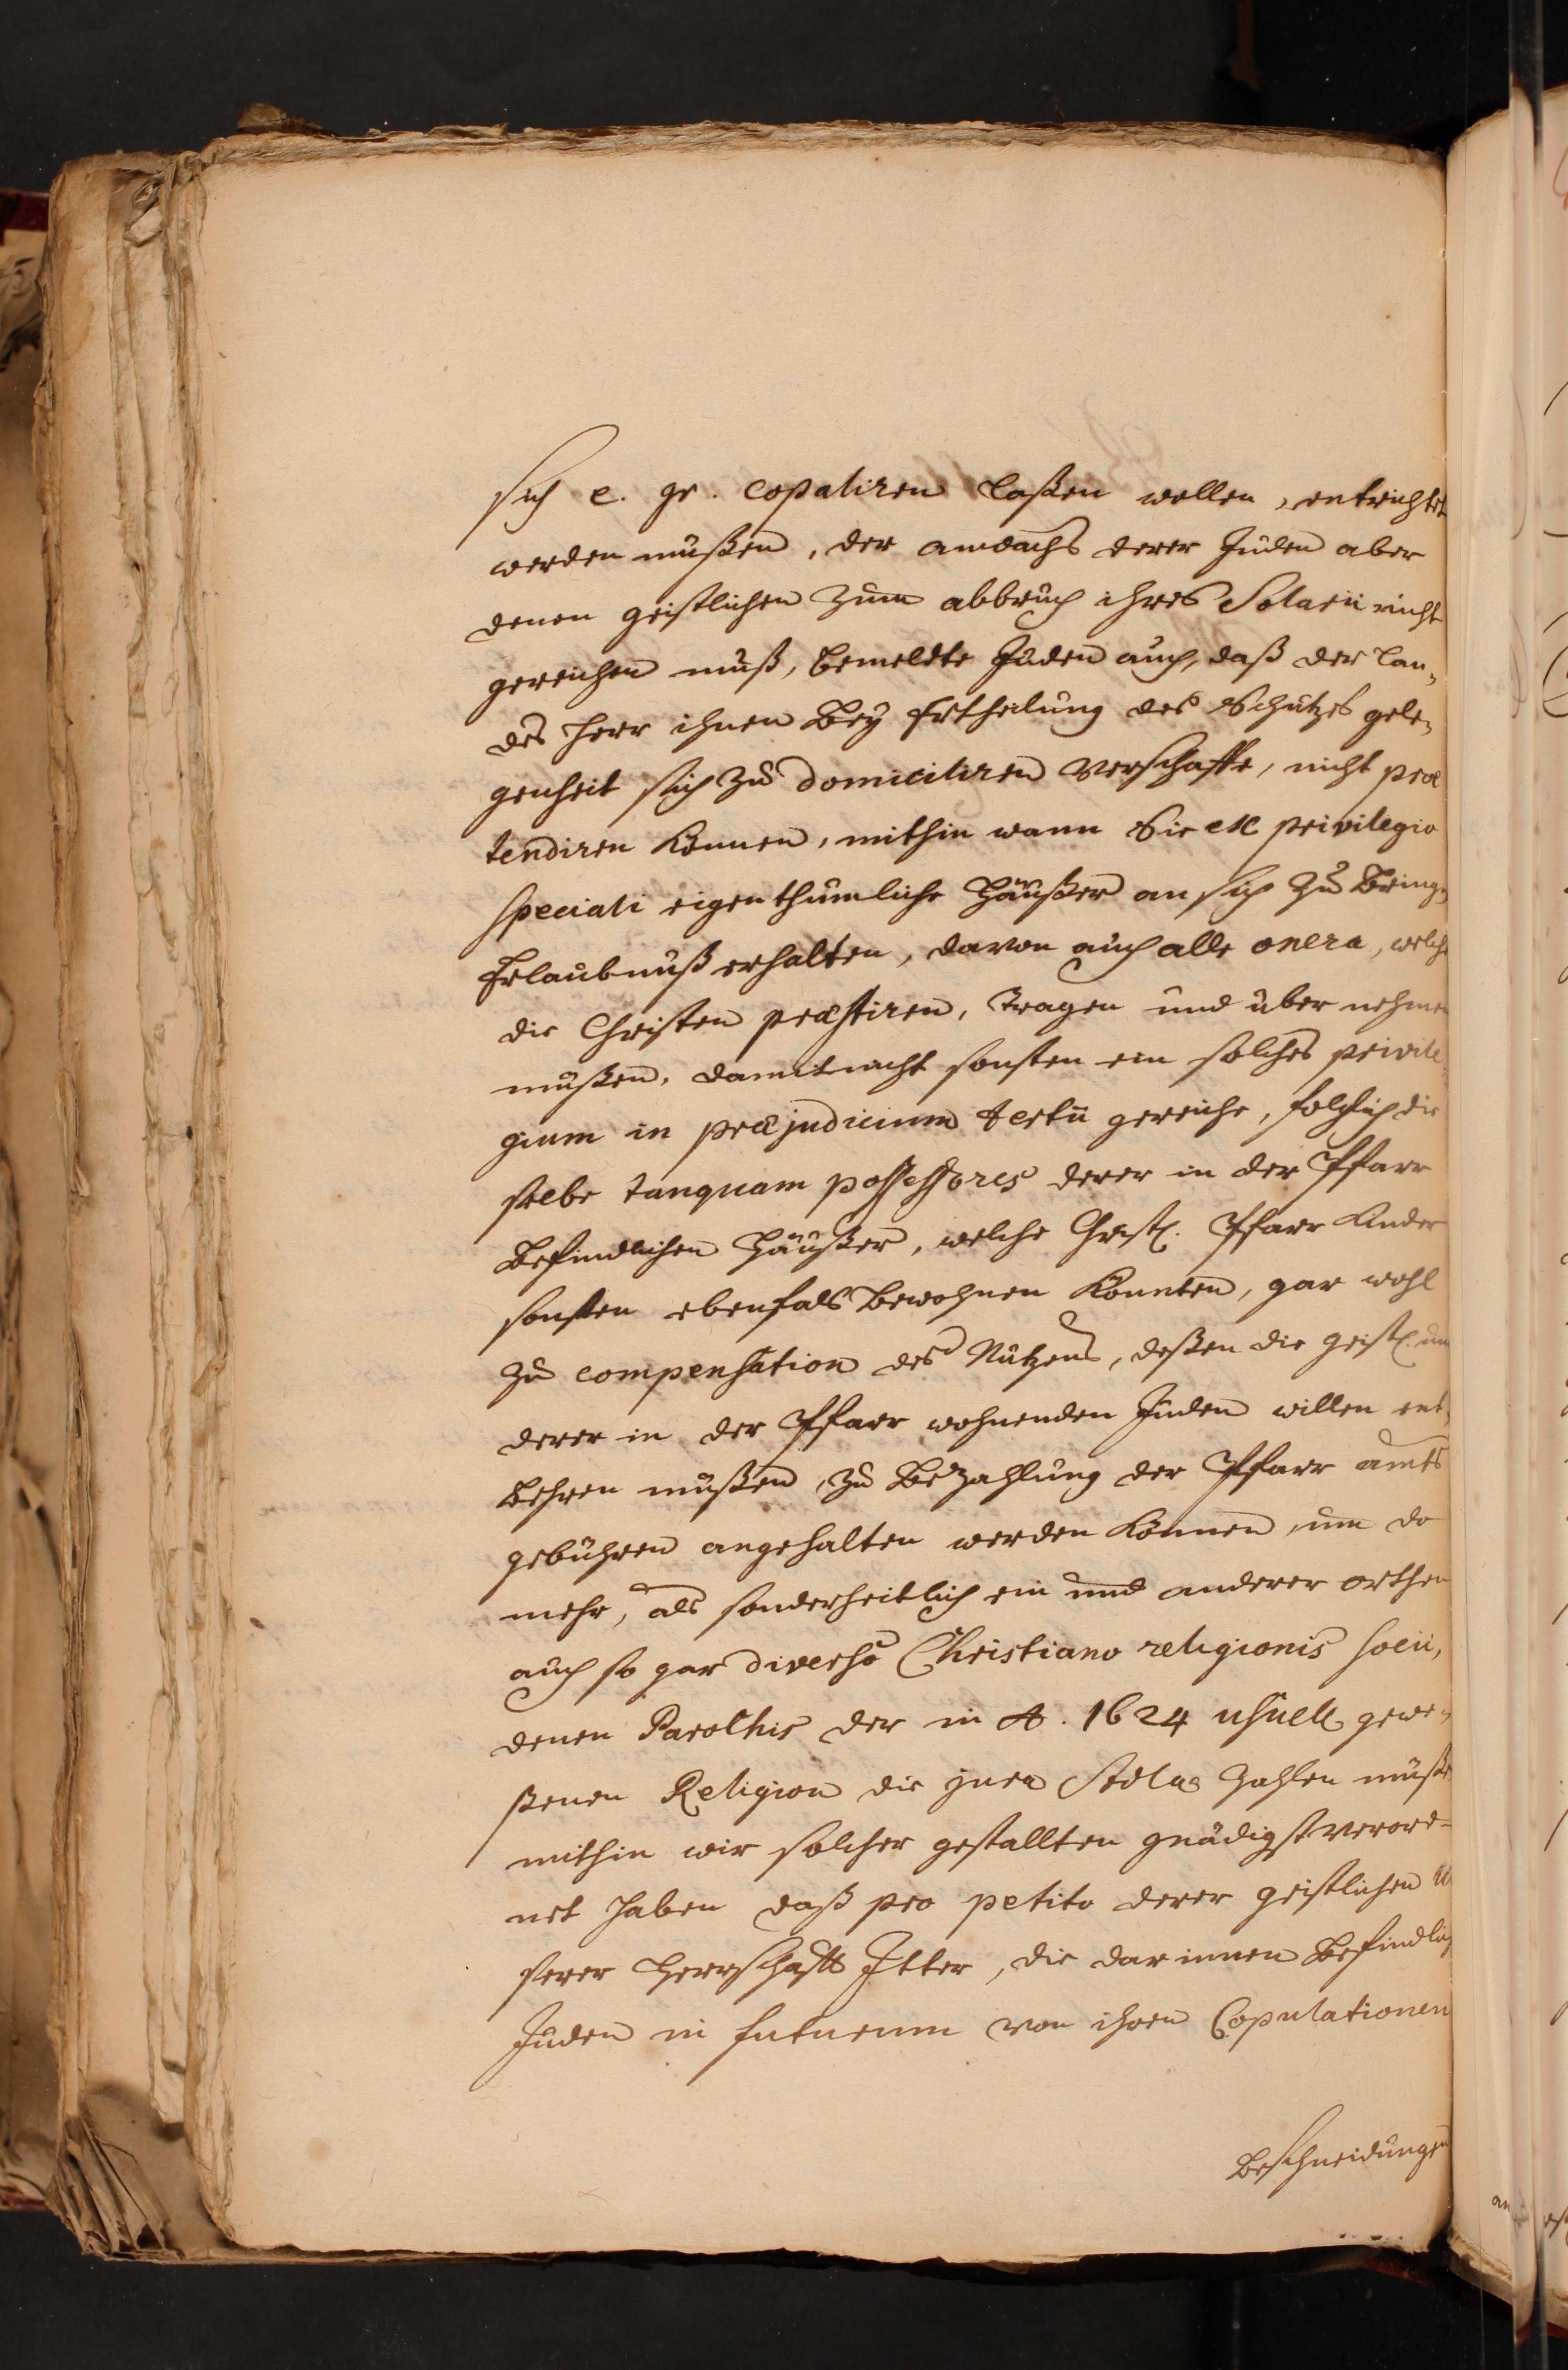 sich e. gr. copuliren laßen wollen, entrichtet
werden müßen, der anwachs derer Juden aber
denen geistlichen zum abbruch ihres Solarii nicht
gereichen muß, bemeldte Juden auch, daß der lan„
des Herr ihnen bey Ertheilung des Schutzes gele„
genheit sich zu domiciliren verschaffe, nicht præ
tendiren können, mithin wann Sie ex privilegio
speciali eigenthümliche Häußer an sich zu bringen
Erlaubnuß erhalten, davon auch alle onera, welche
die Christen præstiren, tragen und über nehmen
müßen, damit nicht sonsten ein solches privile
gium in præjudicium tertii gereiche, folglich die
selbe tanquam possessores derer in der Pfarr
befindlichen Häußer, welche Christl. Pfarr Kinder
sonsten ebenfals bewohnen könnten, gar wohl
zu compensation des Nutzens, deßen die geistl. um
derer in der Pfarr wohnenden Juden willen ent„
behren müßen, zu Bezahlung der Pfarr amts
gebühren angehalten werden können, um do
mehr, als sonderheitlich ein und anderer orthen
auch so gar diversæ Christiano religionis socii,
denen Parochis der in A. 1624 usuell gewe„
ßenen Religion die jura Stolæ zahlen müße
mithin wir solcher gestallten gnädigst verord-
net haben daß pro petito derer geistlichen un
serer Herrschafft Itter, die darinnen befindlich
Juden in futurum von ihren Copulationen
Beschneidungen